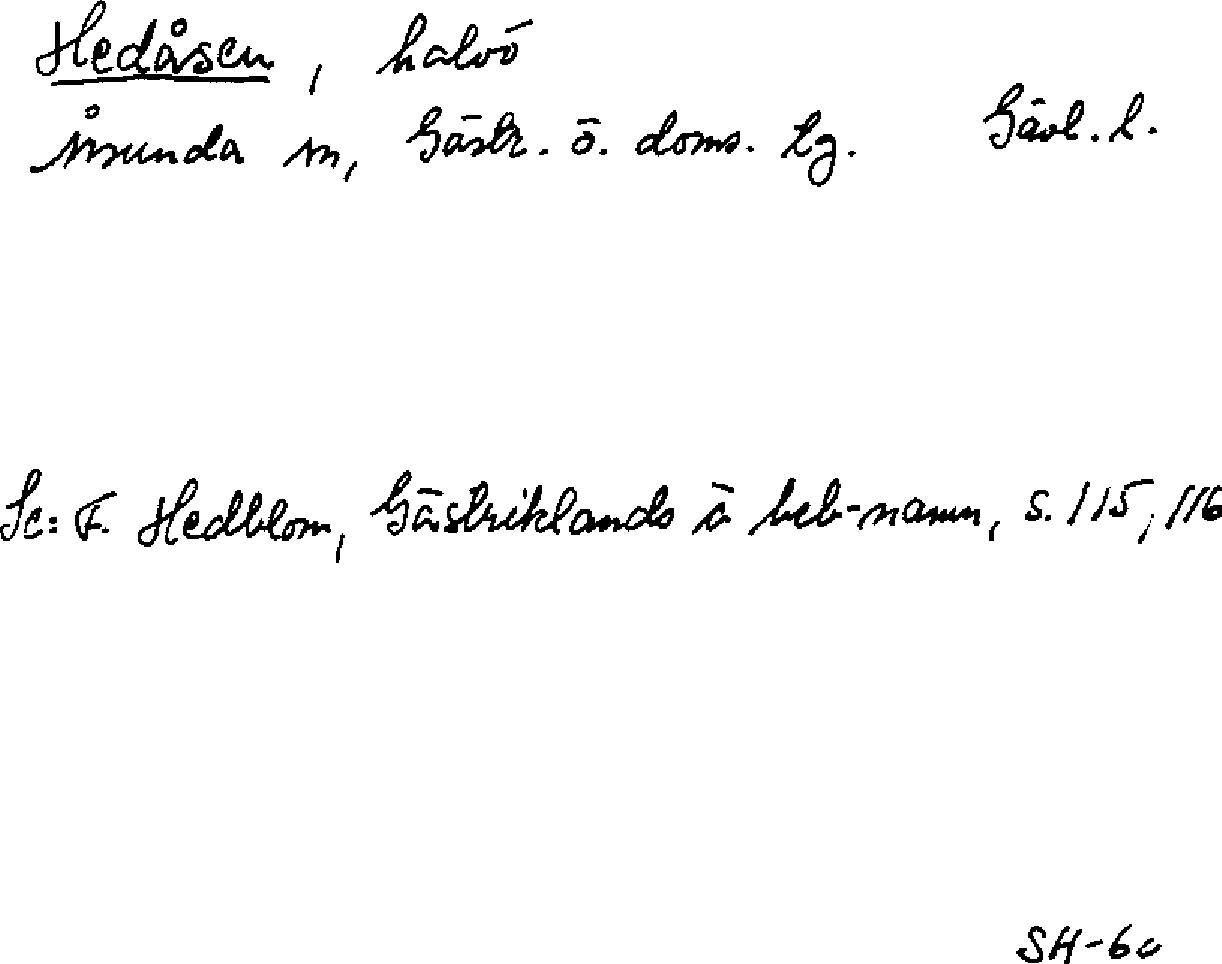 Hedåsen, halvö
Årsunda sn, Gästr. ö. doms. tg. Gävl. l.
Se: F. Hedblom, Gästriklands ä beb-namn, s. 115, 116
SH-60